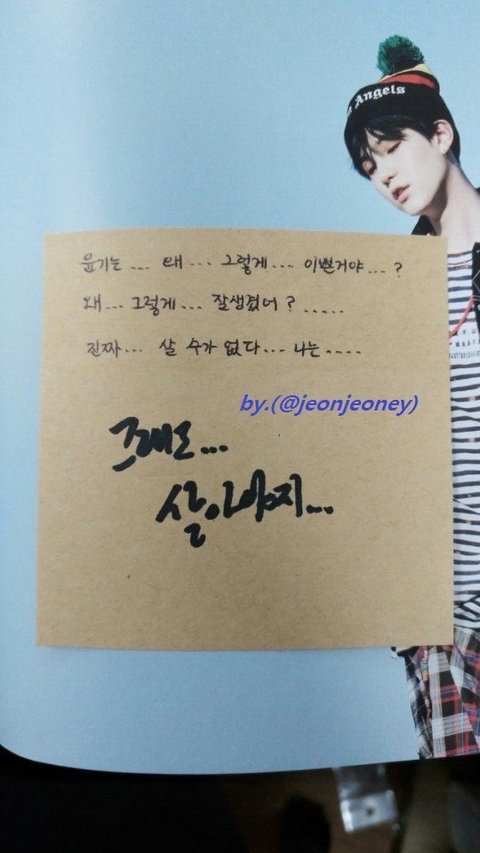 Angels
윤기는... 왜... 그렇게... 이쁜거야...?
왜... 그렇게... 잘생겼어?.....
진짜... 살 수가 없다... 나는.....
by.(@jeonjeoney)
그래도...
살아야지...